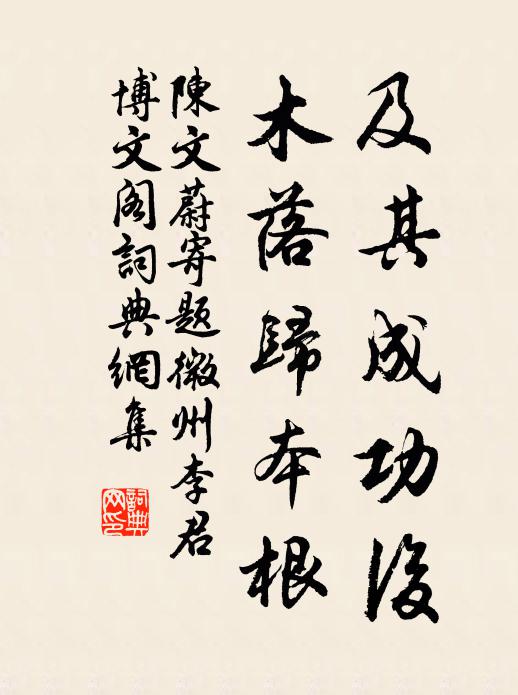 及其成功後
木落歸本根
陳文蔚寄題徽州李君
博文閣詞典網集
詞典网印